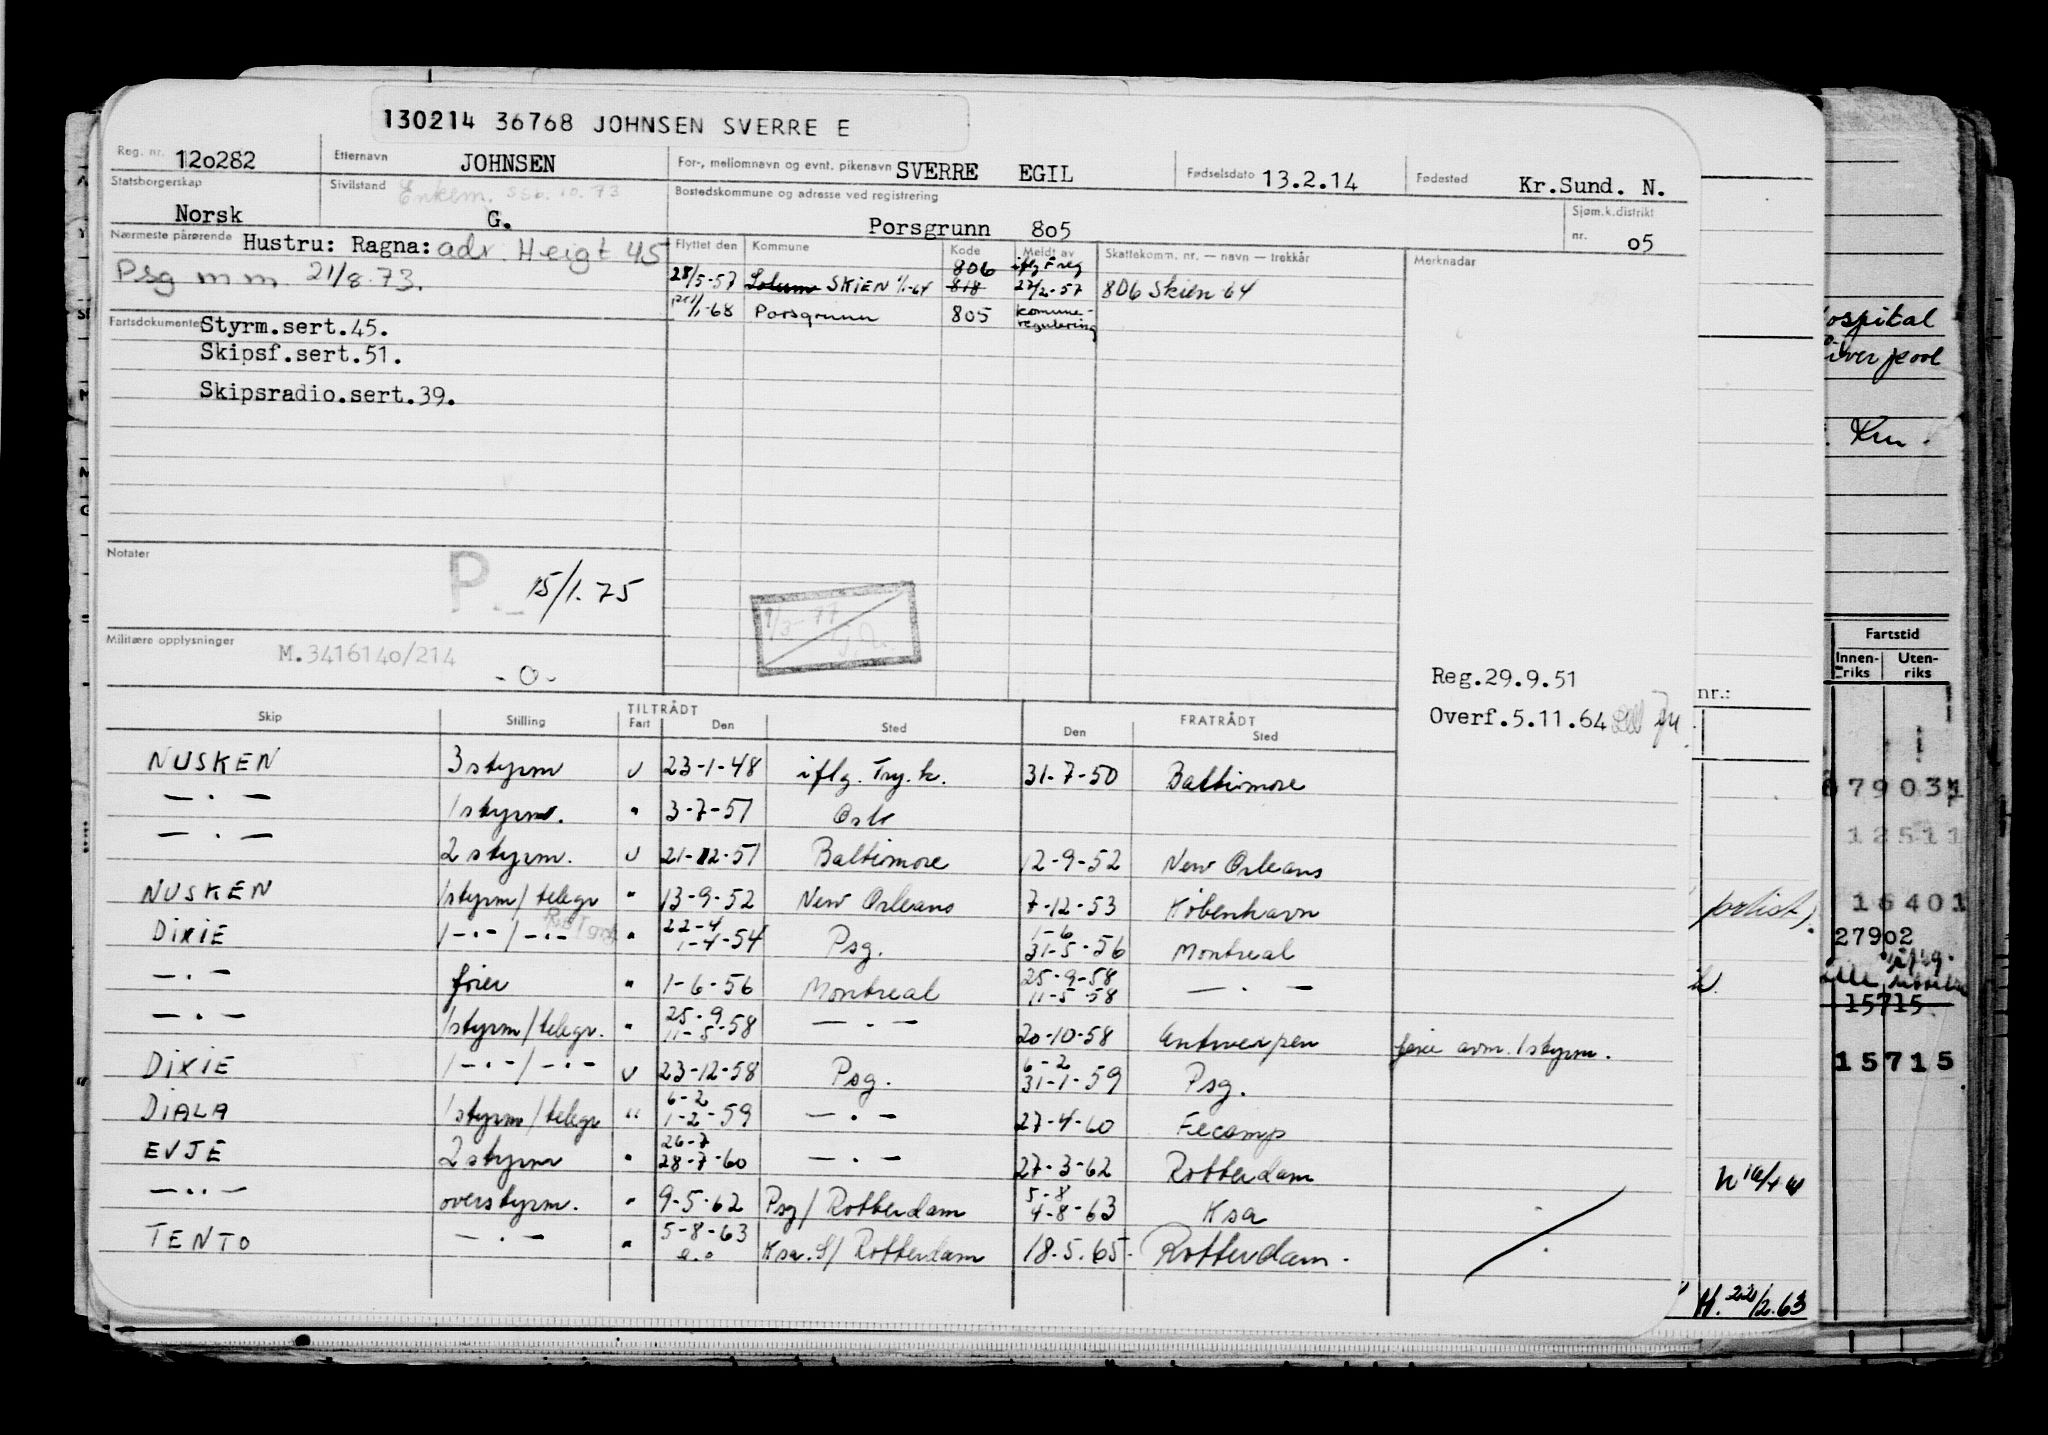 130214 36768 JOHNSEN SVERRE E
Reg. nr. 120282 Etternavn JOHNSEN For-, mellomnavn og evnt. pikenavn SVERRE EGIL Fødselsdato 13.2.14 Fødested Kr.Sund. N.
Statsborgerskap Norsk Sivilstand Enkem. sep. 10. 73 G. Bostedskommune og adresse ved registrering Porsgrunn 805 Sjøm.k.distrikt nr. 05
Nærmeste pårørende Hustru: Ragna: adr. Heigt 45
Psg m m 21/8.73.
Flyttet den Kommune Kode Meldt av Skattekomm. nr. — navn — trekkår Merknader
28/5-57 Solum SKIEN 1/1-64 806 818 iflg Freg 27/2-57 806 Skien 64
1/1-68 Porsgrunn 805 Komune-regulering
Fartsdokumenter Styrm.sert.45.
Skipsf.sert.51.
Skipsradio.sert.39.
Notater P.- 15/1.75
9/3-77
Militære opplysninger M.3416140/214
-0-
Reg.29.9.51
Overf.5.11.64
TILTRÅDT FRATRÅDT
Skip Stilling Fart Den Sted Den Sted
NUSKEN 3 styrm U 23-1-48 iflg. Try.k. 31-7-50 Baltimore
— . — 1 styrm. " 3-7-51 Oslo
— . — 2 styrm. U 21-12-51 Baltimore 12-9-52 New Orleans
NUSKEN 1 styrm/telegr " 13-9-52 New Orleans 7-12-53 København
DIXIE 1 -.-/-.- " 22-4 1-4-54 Psg. 1-6 31-5-56 Montreal
— . — fører " 1-6-56 Montreal 25-9-58 11-5-58 — . —
— . — 1 styrm/telegr. " 25-9 11-5-58 — . — 20-10-58 Antwerpen ferie avm. 1 styrm.
DIXIE 1 -.-/-.- U 23-12-58 Psg. 6-2 31-1-59 Psg.
DIALA 1 styrm/telegr " 6-2 1-2-59 — . — 27-4-60 Fecamp
EVJE 2 styrm " 26-7 28-7-60 — . — 27-3-62 Rotterdam
— .. — overstyrm. " 9-5-62 Psg/Rotterdam 5-8 4-8-63 Ksa
TENTO — . — " 5-8-63 a.o Ksa. S/Rotterdam 18.5.65. Rotterdam.
nr.:
H. 22/2.63
ospital
iverpool
Kru.
Fartstid
Innen-riks Uten-riks
79031
12511
16401
27902
15715
15715